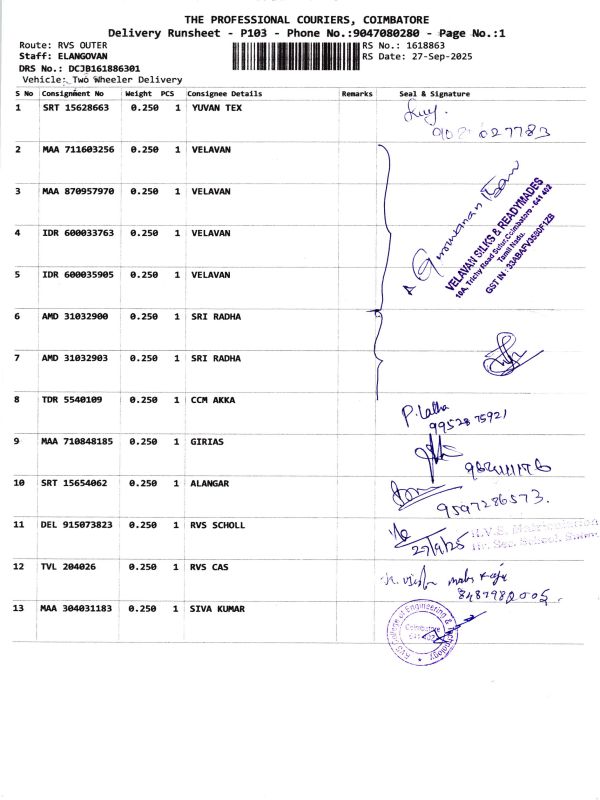 THE PROFESSIONAL COURIERS, COIMBATORE
Delivery Runsheet - P103 - Phone No.:9047080280 - Page No.:1
Route: RVS OUTER
RS No.: 1618863
Staff: ELANGOVAN
RS Date: 27-Sep-2025
DRS No.: DCJB161886301
Vehicle: Two Wheeler Delivery
S No Consignment No Weight PCS Consignee Details Remarks Seal & Signature
1 SRT 15628663 0.250 1 YUVAN TEX
2 MAA 711603256 0.250 1 VELAVAN
3 MAA 870957970 0.250 1 VELAVAN
4 IDR 600033763 0.250 1 VELAVAN
5 IDR 600035905 0.250 1 VELAVAN
VELAVAN SILKS & READYMADES
10A, Trichy Road Sulur, Coimbatore - 641 402
Tamil Nadu.
GST IN : 33ABAFV3580F1ZB
6 AMD 31032900 0.250 1 SRI RADHA
7 AMD 31032903 0.250 1 SRI RADHA
8 TDR 5540109 0.250 1 CCM AKKA
P. Latha
9952875921
9 MAA 710848185 0.250 1 GIRIAS
10 SRT 15654062 0.250 1 ALANGAR
9597286573.
11 DEL 915073823 0.250 1 RVS SCHOLL
27/9/25
R.V.S. Matriculation
Hr. Sec. School, Sulur
12 TVL 204026 0.250 1 RVS CAS
13 MAA 304031183 0.250 1 SIVA KUMAR
RVS College of Engineering & Technology
Coimbatore
641 402